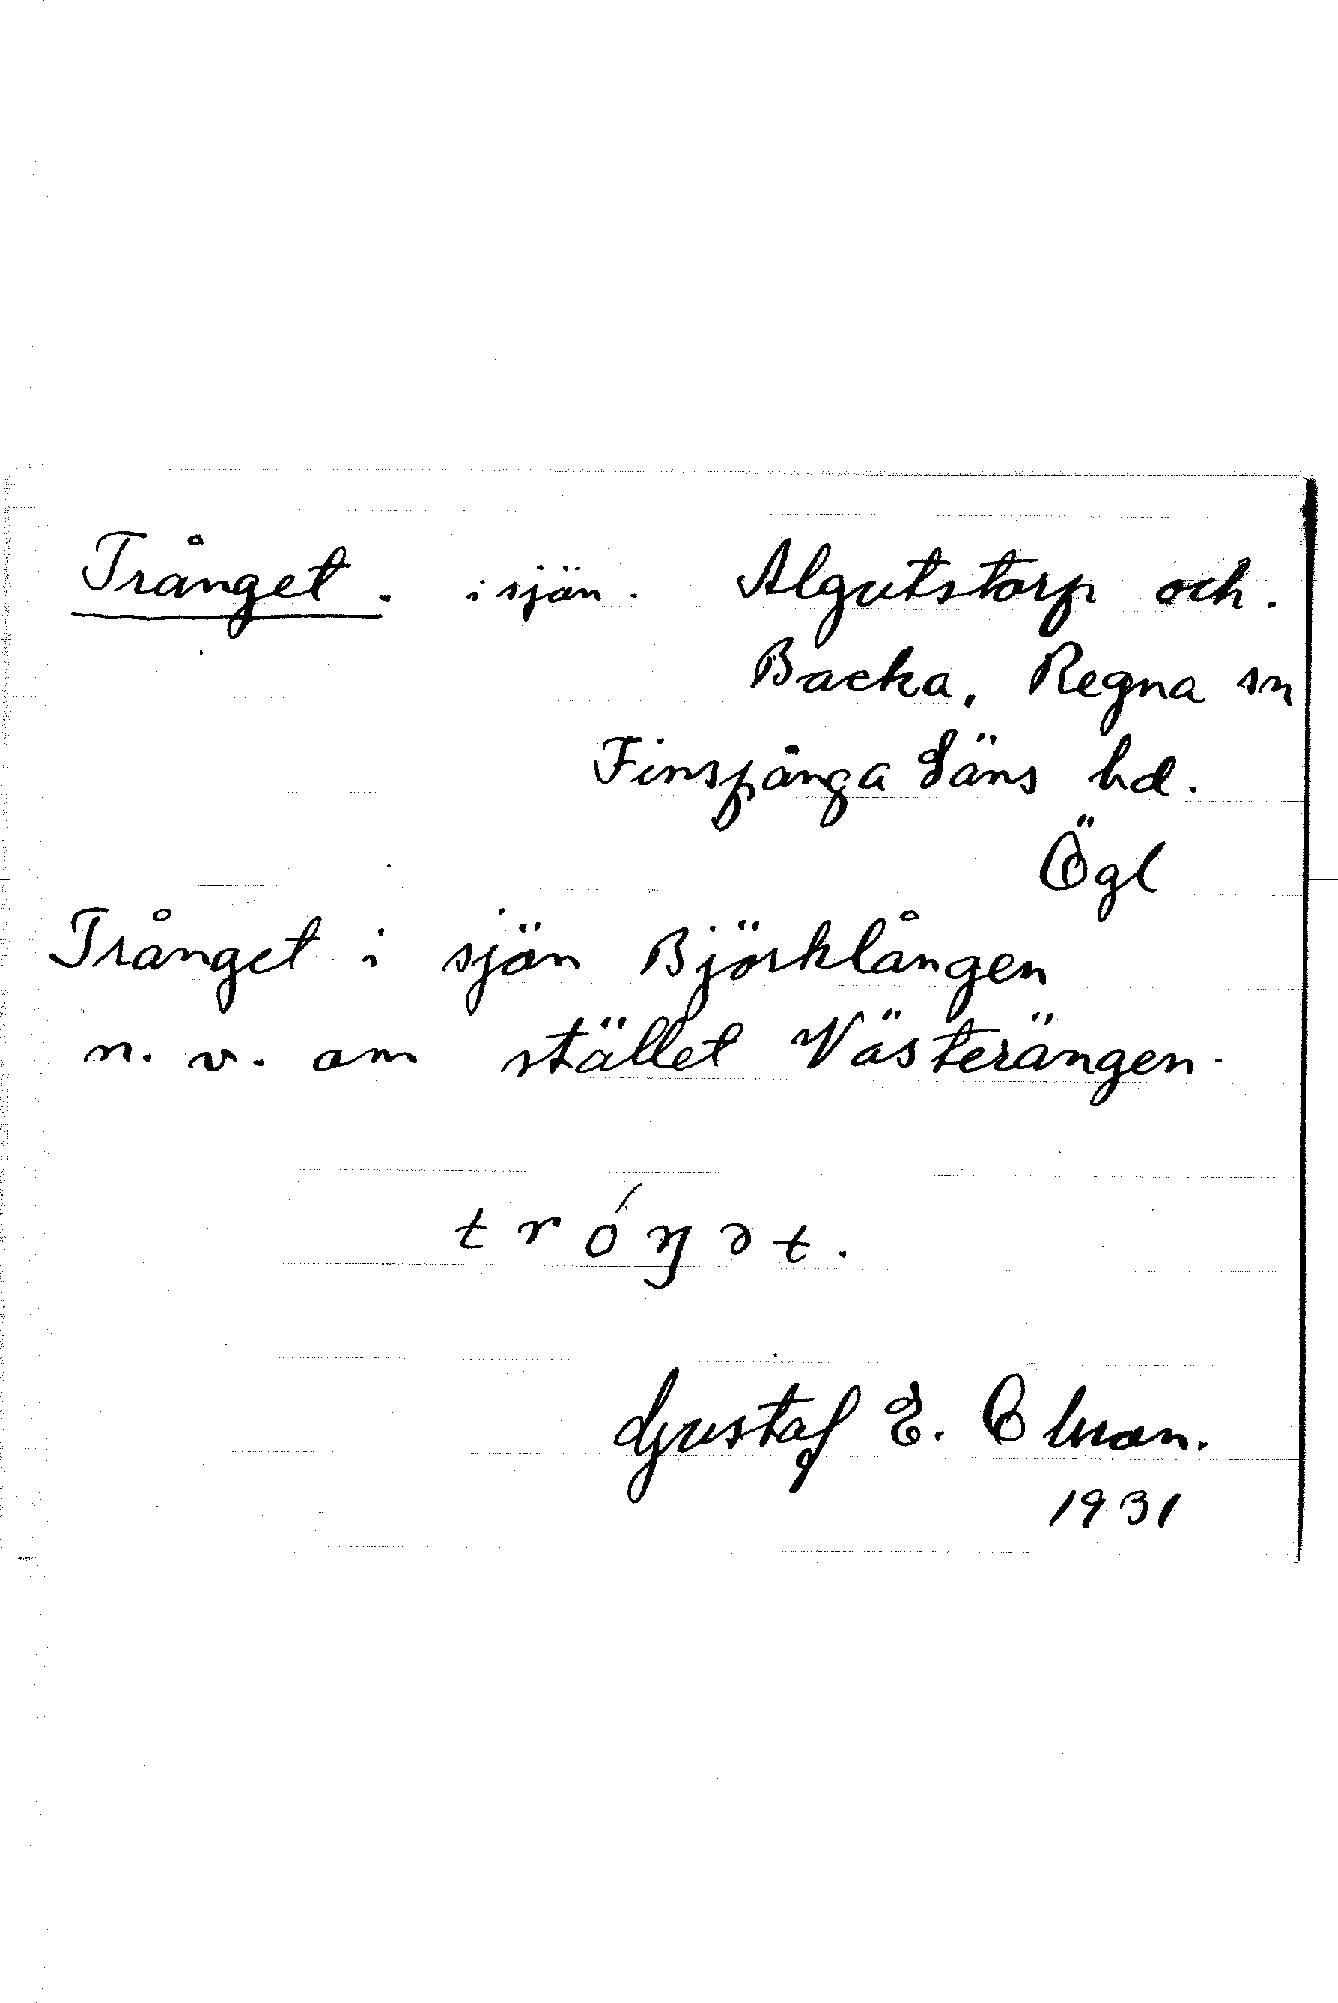 Trånget. i sjön. Algutstorp och.
Backa, Regna sn
Finspånga Läns hd.
Ögl
Trånget i sjön Björklången
n. v. om stället Västerängen.
tróŋət.
Gustaf E. Olman.
1931